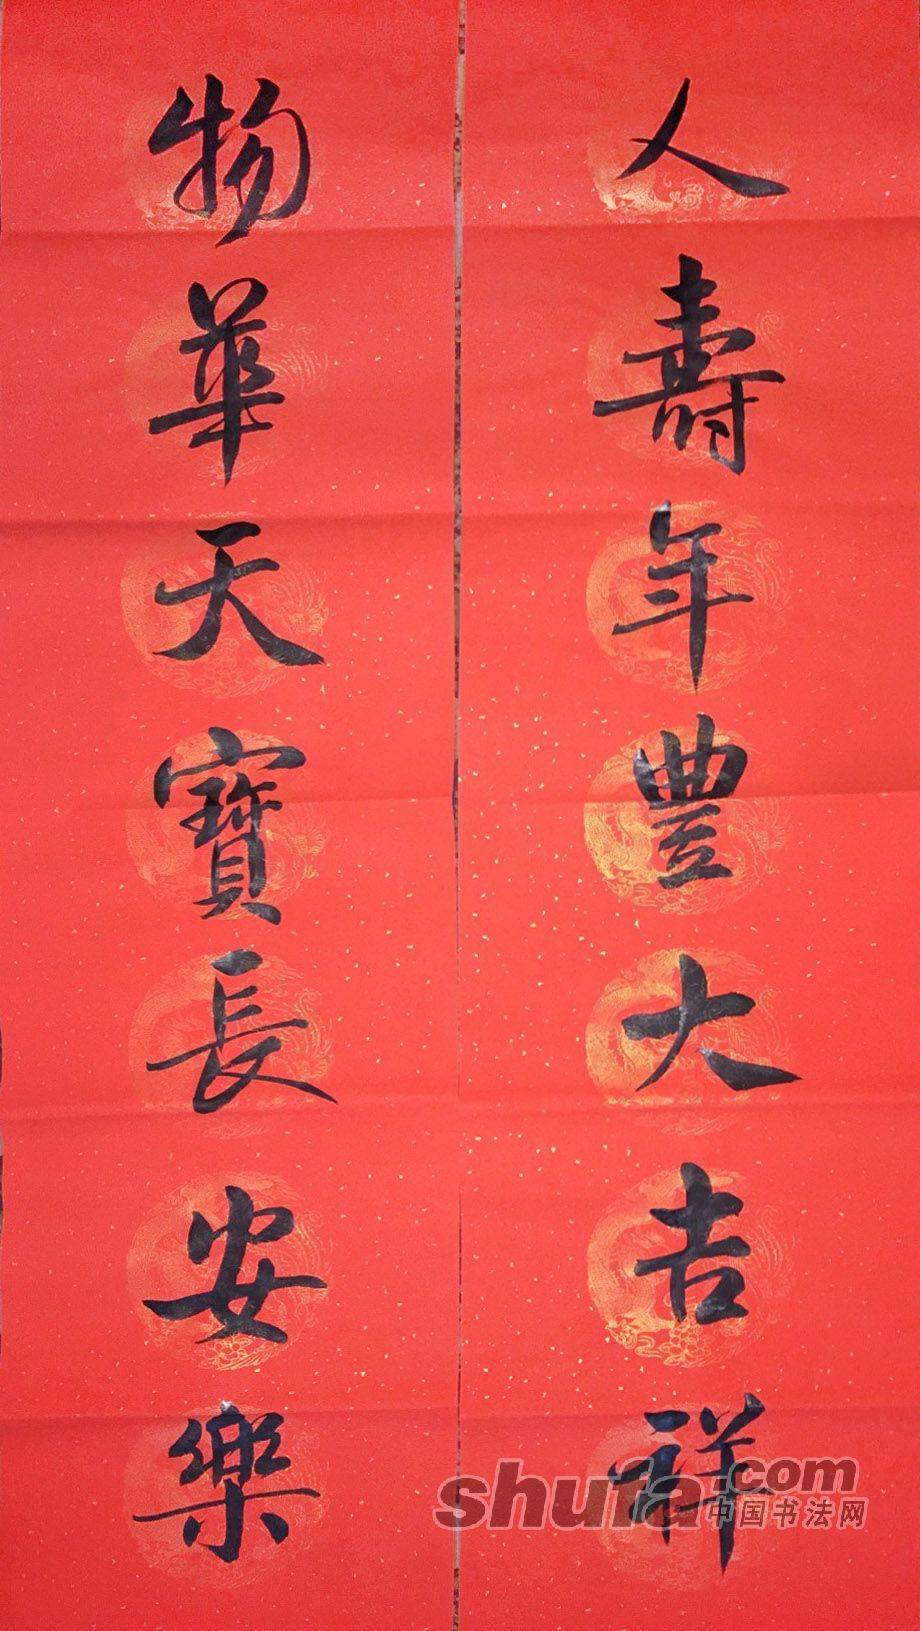 人壽年豐大吉祥
物華天寶長安樂
shufa.com
中国书法网